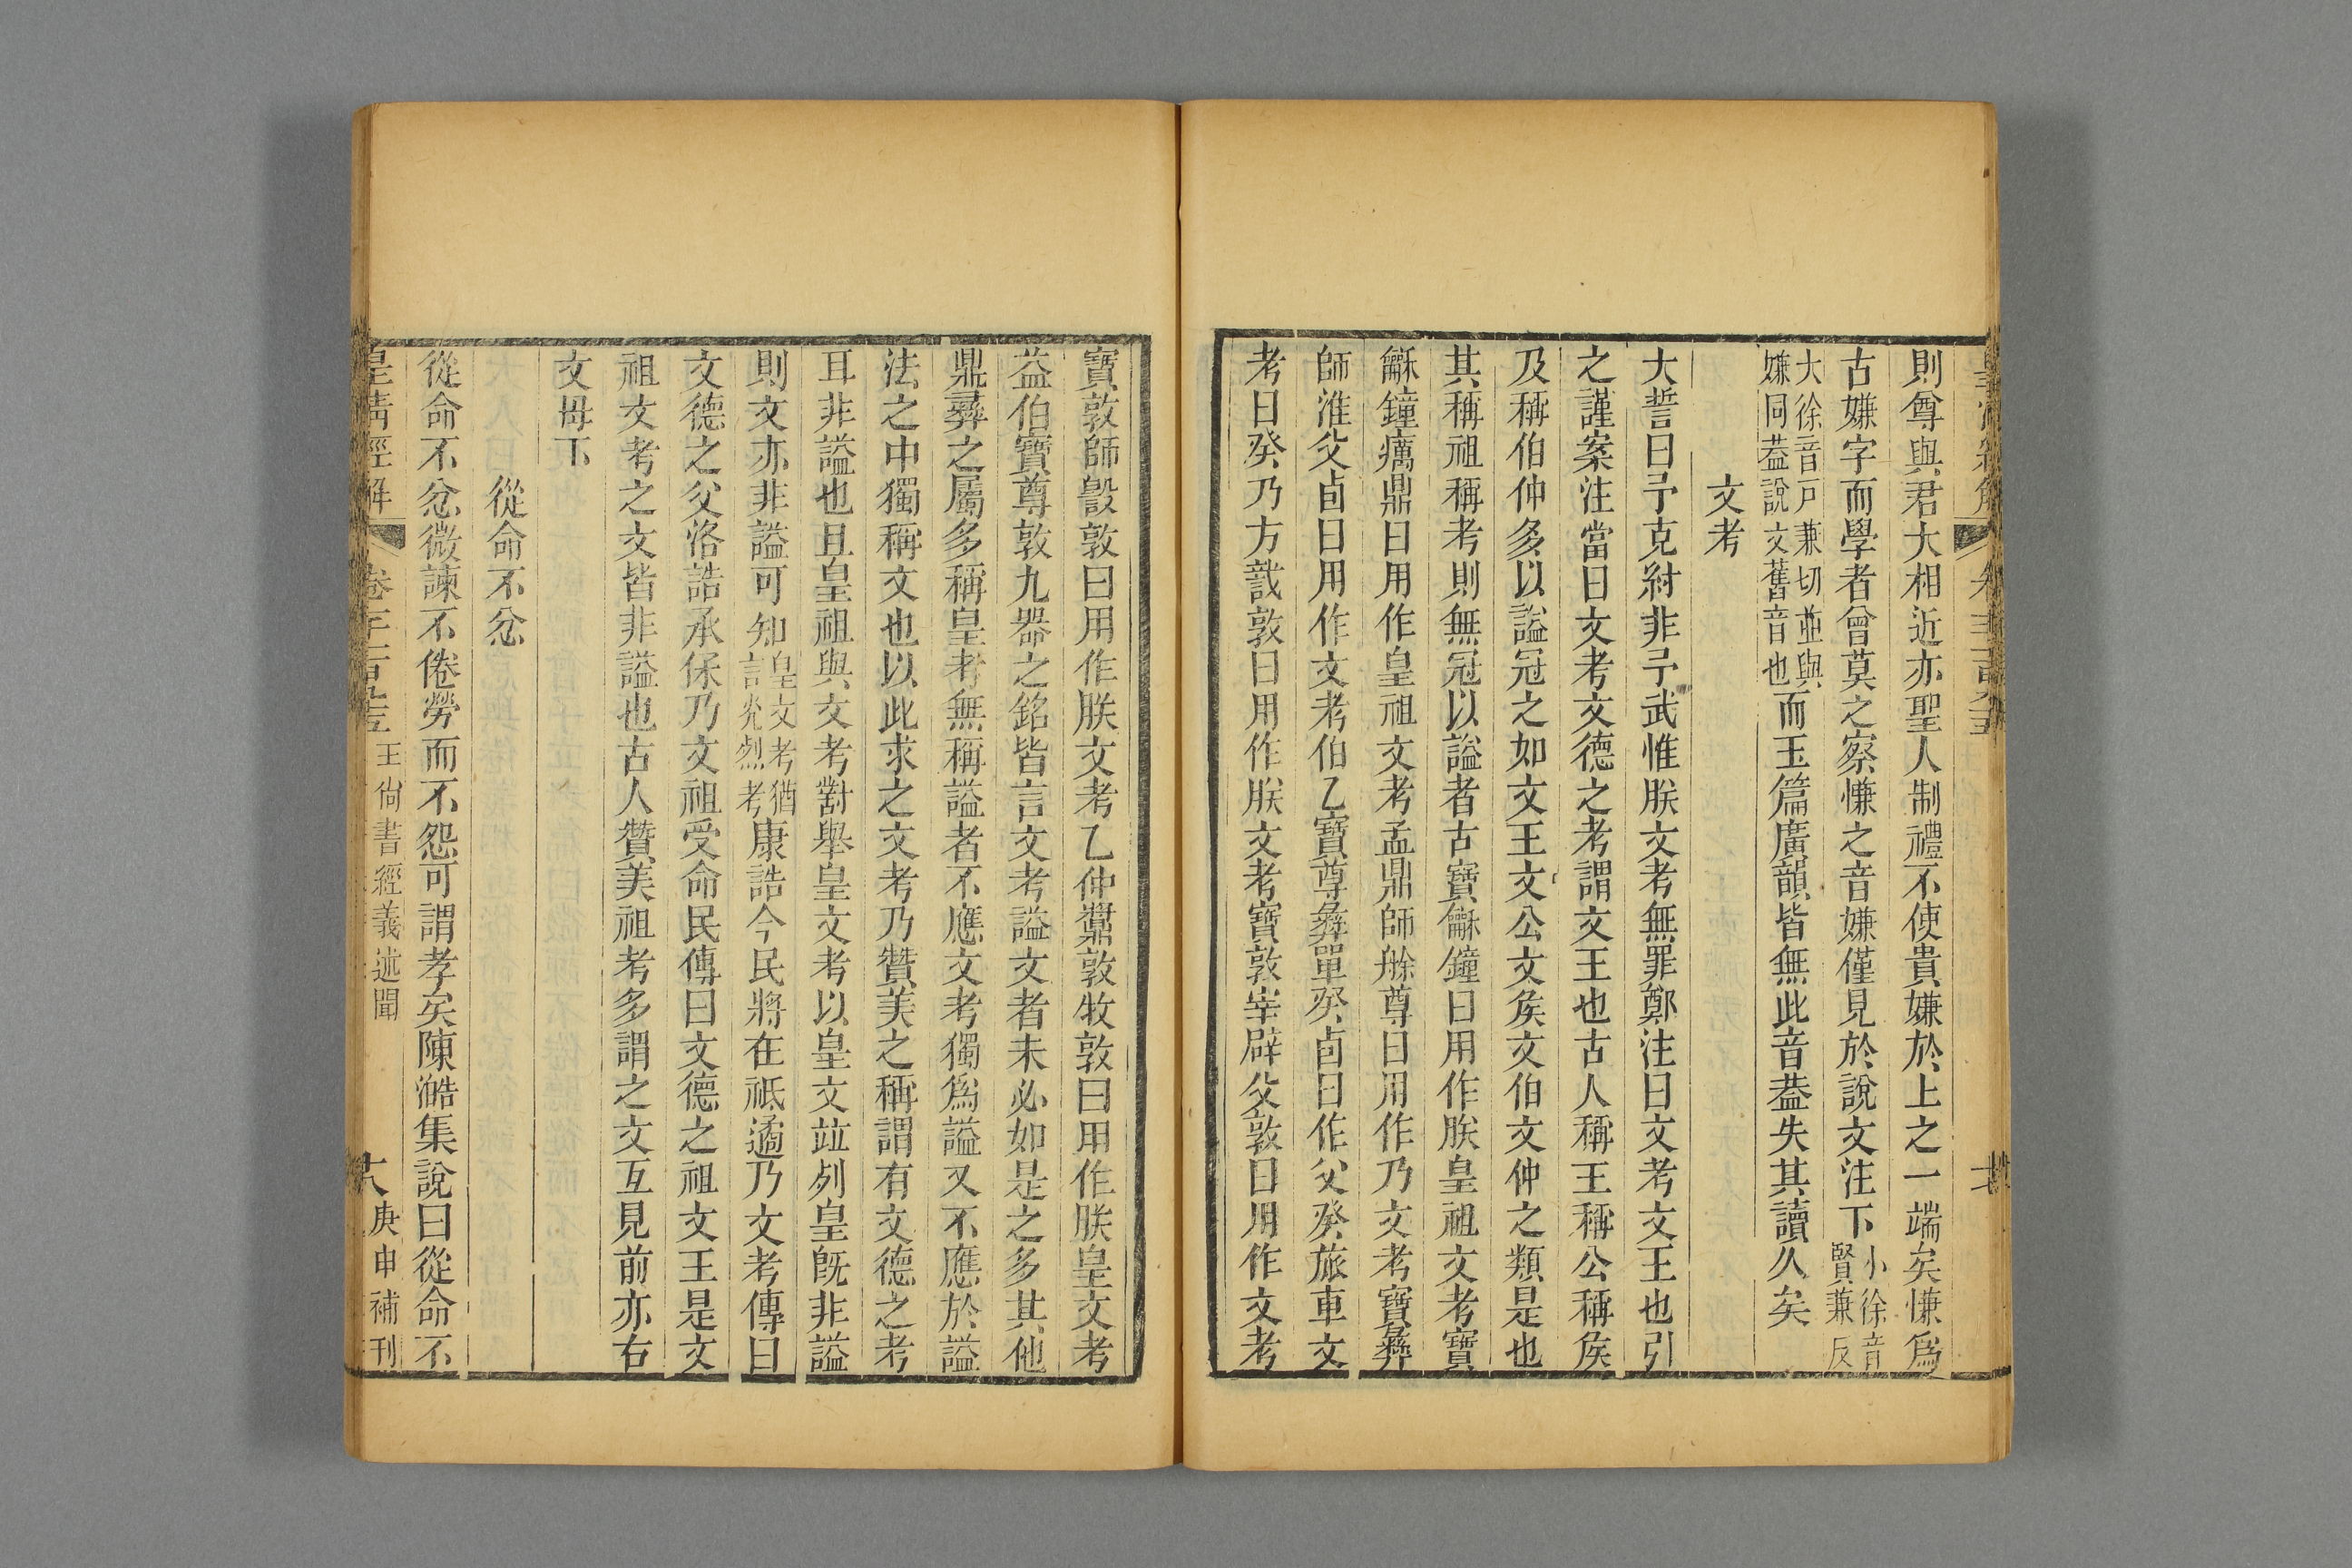 則尊與君大相近亦聖人制禮不使貴嫌於上之一端矣慊爲
古嫌字而學者曾莫之察慊之音嫌僅見於說文注下小徐音賢兼反
大徐音戸兼切並與嫌同葢說文舊音也而玉篇廣韻皆無此音葢失其讀久矣
文考
大誓曰予克紂非予武惟朕文考無罪鄭注曰文考文王也引
之謹案注當曰文考文德之考謂文王也古人稱王稱公稱矦
及稱伯仲多以謚冠之如文王文公文矦文伯文仲之類是也
其稱祖稱考則無冠以謚者古寶龢鐘曰用作朕皇祖文考寶
龢鐘癘鼎曰用作皇祖文考盂鼎師艅尊曰用作乃文考寶彝
師淮父卣曰用作文考伯乙寶尊彝單癸卣曰作父癸旅車文
考曰癸乃方敦曰用作朕文考寶敦宰辟父敦曰用作文考
寶敦師㲄敦曰用作朕文考乙仲敦牧敦曰用作朕皇文考
益伯寶尊敦九器之銘皆言文考謚文者未必如是之多其他
鼎彝之屬多稱皇考無稱謚者不應文考獨爲謚又不應於謚
法之中獨稱文也以此求之文考乃贊美之稱謂有文德之考
耳非謚也且皇祖與文考對舉皇文考以皇文竝列皇旣非謚
則文亦非謚可知皇文考猶言光烈考康誥今民將在祗遹乃文考傳曰
文德之父洛誥承保乃文祖受命民傳曰文德之祖文王是文
祖文考之文皆非謚也古人贊美祖考多謂之文互見前亦右
文母下
從命不忿
從命不忿微諫不倦勞而不怨可謂孝矣陳澔集說曰從命不
皇清經解
王尙書經義述聞
庚申補刊